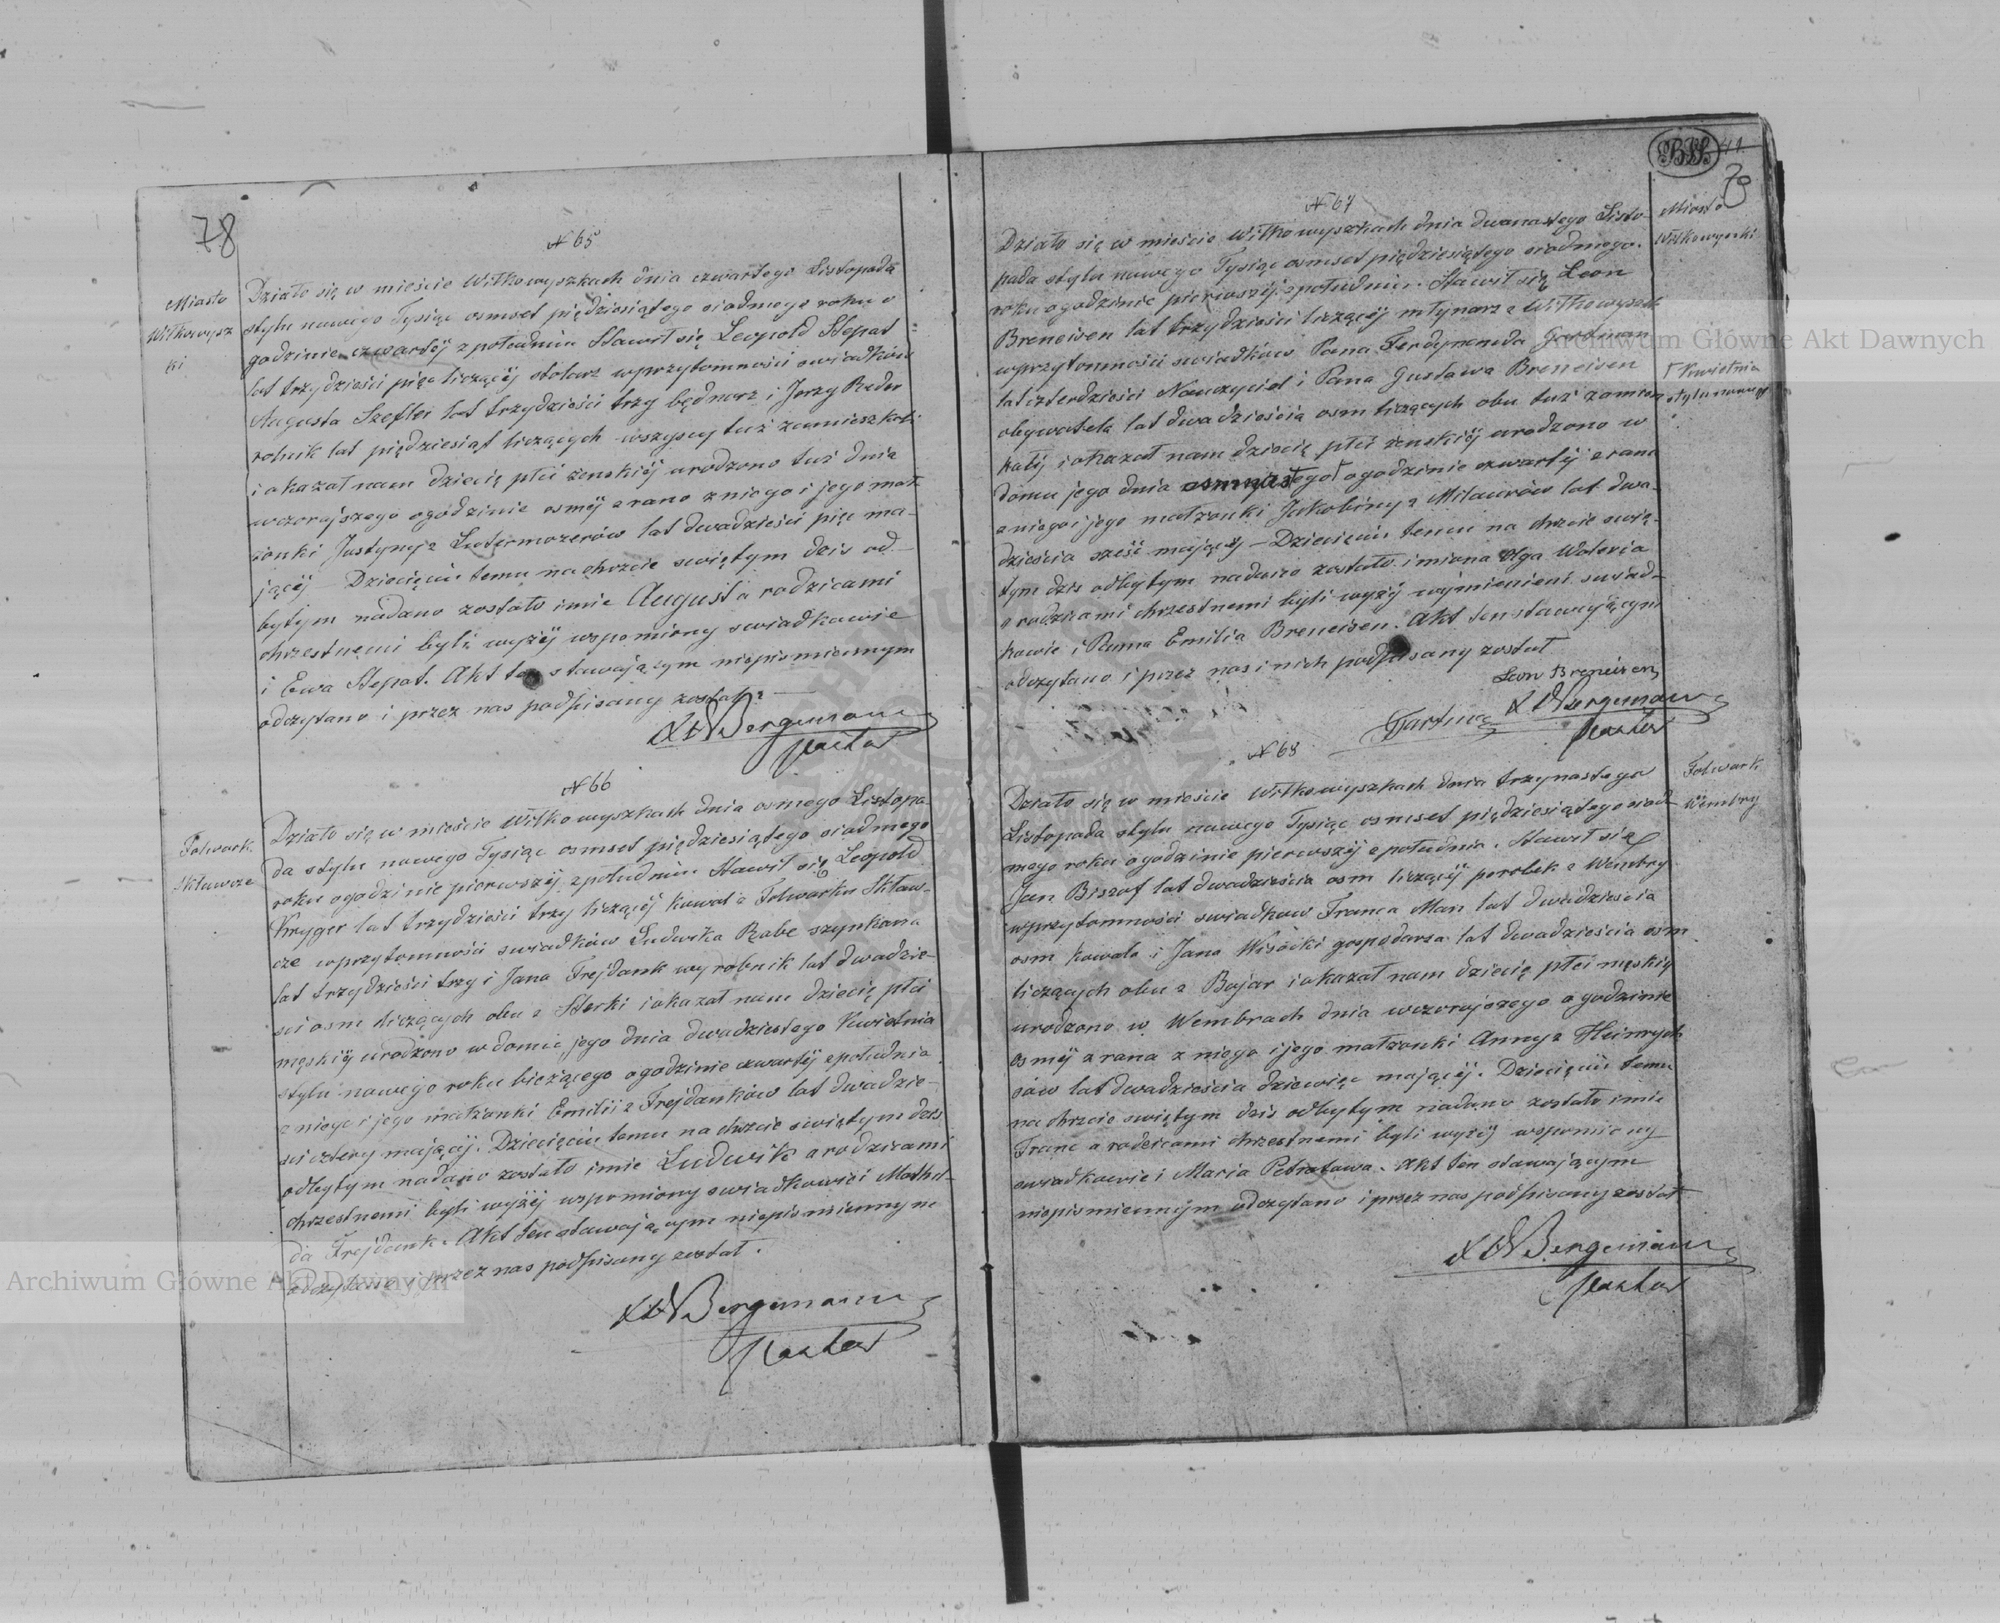 78
N 65
Miasto
Wiłkowysz
ki
Działo się w mieście Wiłkowyszkach dnia czwartego Listopada
stylu nowego Tysiąc osmset pięćdziesiątego siódmego roku o
godzinie czwartéj z południa Stawił się Leopold Stepat
lat trzydzieści pięć liczący stolarz w przytomności swiadków
Augusta Szefler lat trzydzieści trzy będnarz i Jerzy Reder
rolnik lat pięćdziesiąt liczących wszyscy tuż zamieszkali
i okazał nam dziecię płci zenskiéj urodzone tuż dnia
wczorajszego o godzinie osméj z rana z niego i jego mał
żonki Justyny z lat dwadzieści pięć ma-
jącéj Dziecięciu temu na chrzcie swiętym dzis od-
bytym nadano zostało imie Augusta rodzicami
chrzestnemi byli wyżéj wspomiony swiadkowie
i Ewa Stepat. Akt ten stawającym niepismiennym
odczytano i przez nas podpisany został
Bergemann
Pastor
N 66
Folwark
Skławcze
Działo się w mieście Wiłkowyszkach dnia osmego Listopa
da stylu nowego Tysiąc osmset pięćdziesiątego siódmego
roku o godzinie pierwszéj z południa Stawił się Leopold
Kryger lat trzydzieści trzy liczący kowal z Folwarku Skław-
cze w przytomności swiadków Ludwika Rabe szynkarza
lat trzydzieści trzy i Jana Frejdank wyrobnik lat dwadzie-
sci osm liczących obu z i okazał nam dziecię płci
męskiéj urodzone w domie jego dnia dwudziestego Kwietnia
stylu nowego roku bieżącego o godzinie czwartéj z południa
z niego i jego małżonki Emilii z Frejdanków lat dwadzie-
sci cztery mającéj. Dziecięciu temu na chrzcie swiętym dzis
odbytym nadano zostało imie Ludwik a rodzicami
chrzestnemi byli wyżéj wspomiony swiadkowie i Mathil-
da Frejdank. Akt ten stawającym niepismiennym
odczytano i przez nas podpisany został.
Bergemann
Pastor
N 67
Miasto
Wiłkowyszki
Działo się w mieście Wiłkowyszkach dnia dwunastego Listo-
pada stylu nowego Tysiąc osmset pięćdziesiątego siódmego
roku o godzinie pierwszéj z południa. Stawił się Leon
Breneisen lat trzydzieści liczący młynarz z Wiłkowyszk
w przytomności swiadków Pana Ferdynanda
lat czterdzieści Nauczyciel i Pana Gustawa Breneisen
Kwietnia
stylu nowego
obywatela lat dwadzieścia osm liczących obu tuż zamiesz
kałéj i okazał nam dziecię płci żenskiéj urodzone w
domu jego dnia osmnastego o godzinie czwartéj z rana
z niego i jego małżonki Jakobiny z Milawrów lat dwa-
dzieścia sześć mającéj - Dziecięciu temu na chrzcie swię-
tym dzis odbytym nadano zostało imiona Olga Waleria
a rodzicami chrzestnemi byli wyżéj wymienieni swiad-
kowie i Panna Emilia Breneisen. Akt ten stawającym
odczytano i przez nas i nich podpisany został
Leon Breneisen
Bergemann
Pastor
N 68
Folwark
Wembry
Działo się w mieście Wiłkowyszkach dnia trzynastego
Listopada stylu nowego Tysiąc osmset pięćdziesiątego siód-
mego roku o godzinie pierwszéj z południa. Stawił się
Jan Biszof lat dwadzieścia osm liczący parobek z Wembry
w przytomności swiadkow Franca Man lat dwadzieścia
osm kowala i Jana Wisocki gospodarza lat dwadzieścia osm
liczących obu z Bojar i okazał nam dziecię płci męskiéj
urodzone w Wembrach dnia wczorajszego o godzinie
osméj z rana z niego i jego małżonki Anny z Heinrych
sów lat dwadzieścia dziewięć mającéj. Dziecięciu temu
na chrzcie swiętym dzis odbytym nadano zostało imie
Franc a rodzicami chrzestnemi byli wyżéj wspomiony
swiadkowie i Maria Petratowa. Akt ten stawającym
niepismiennym odczytano i przez nas podpisany został
Bergemann
Pastor
Archiwum Główne Akt Dawnych
Archiwum Główne Akt Dawnych